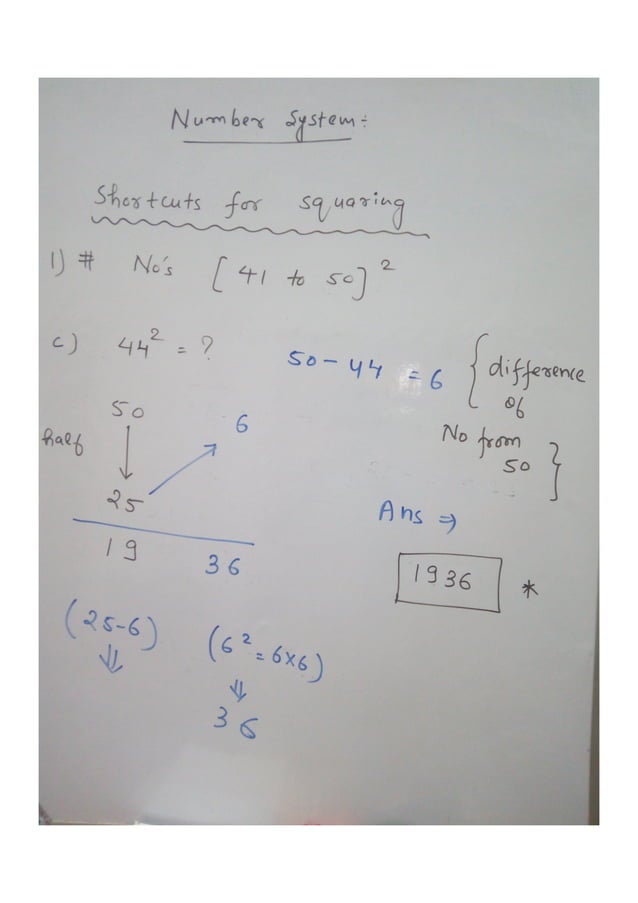 Number System:
Shortcuts for squaring
1) # No's [41 to 50]²
c) 44² = ?
50 - 44 = 6 { difference
of
No from
50 }
50
half
6
25
19 36
Ans ⇒
1936 *
(25-6) (6² = 6×6)
⇓ ⇓
36